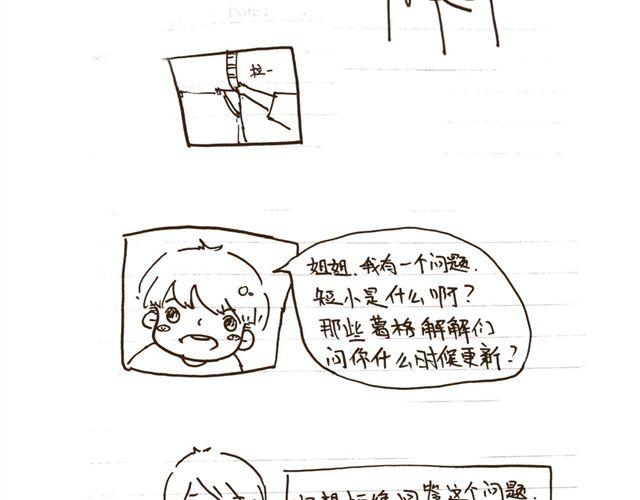 Date.
拉一
姐姐.我有一个问题.
短小是什么啊?
那些葛格解解们
问你什么时候更新?
答这个问题.